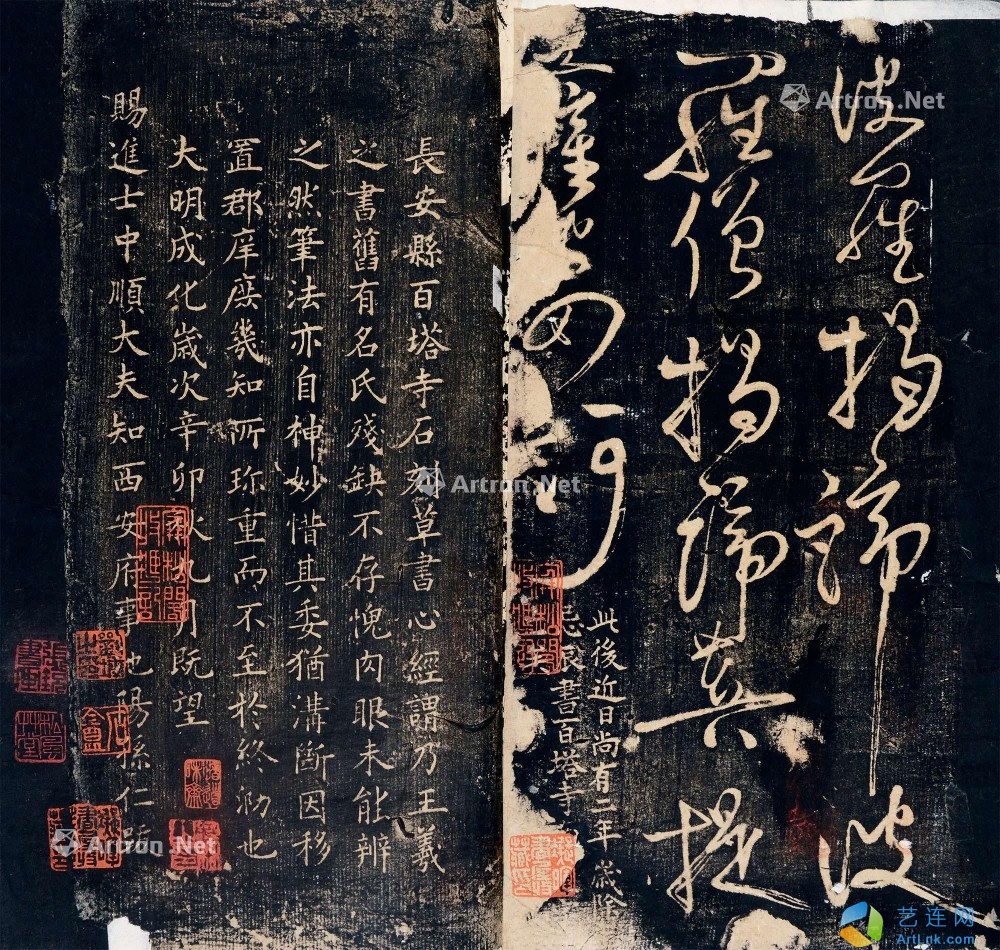 波羅揭諦波
羅僧揭諦菩提
此後近日尚有二年歲除
忌辰書百塔寺
長安縣百塔寺石刻草書心經謂乃王羲
之書舊有名氏殘缺不存愧肉眼未能辨
之然筆法亦自神妙惜其委猶溝斷因移
置郡庠庶幾知所珎重而不至於終泐也
大明成化歲次辛卯秋九月既望
賜進士中順大夫知西安府事池陽孫仁跋
Artron.Net
Artron.Net
Artron.Net
Artron.Net
艺连网
ArtLnk.com